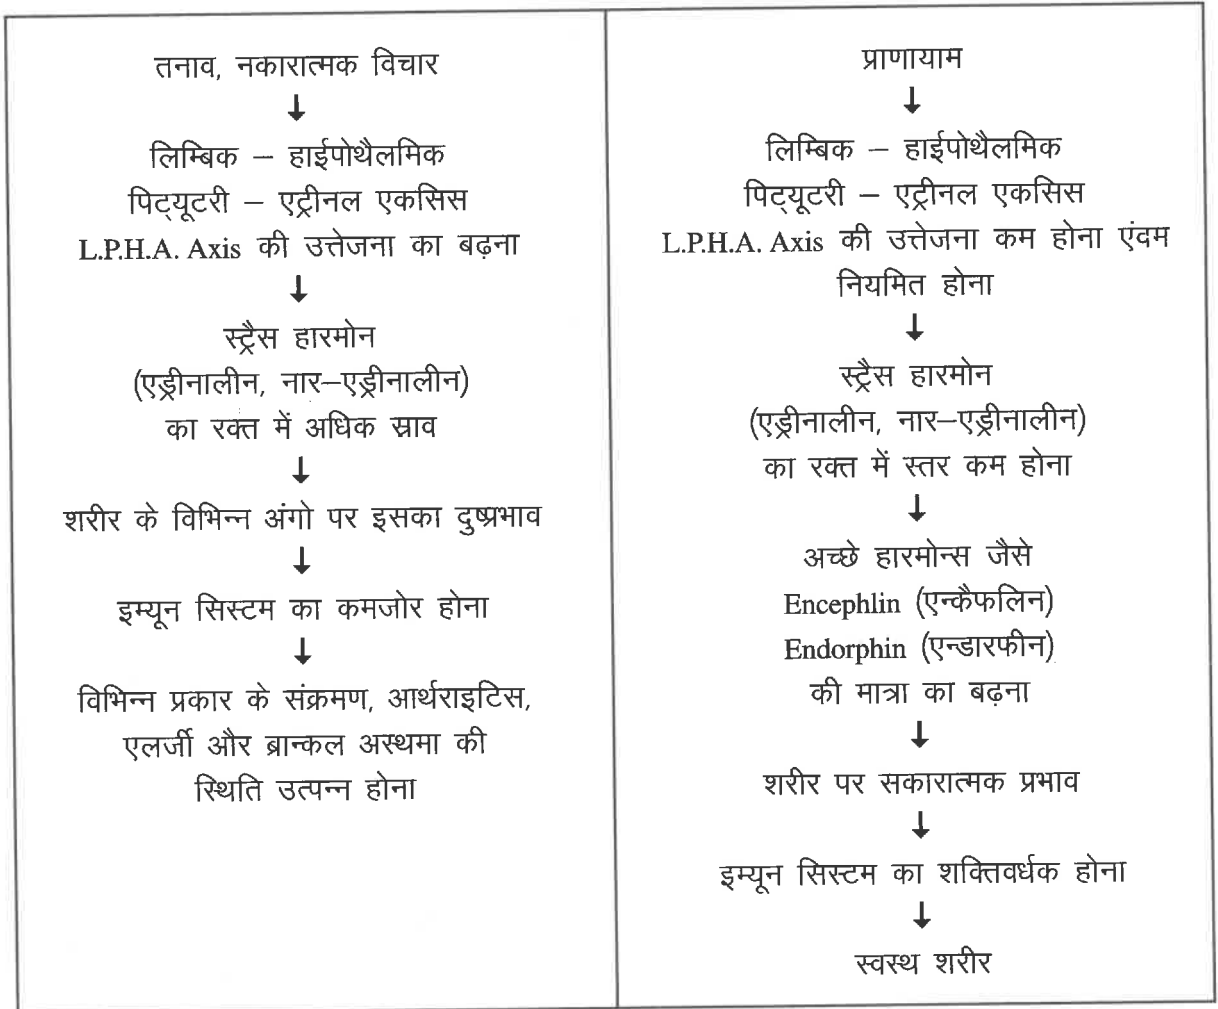 तनाव, नकारात्मक विचार
↓
लिम्बिक – हाईपोथैलमिक
पिट्यूटरी – एट्रीनल एकसिस
L.P.H.A. Axis की उत्तेजना का बढ़ना
↓
स्ट्रैस हारमोन
(एड्रीनालीन, नार–एड्रीनालीन)
का रक्त में अधिक स्राव
↓
शरीर के विभिन्न अंगो पर इसका दुष्प्रभाव
↓
इम्यून सिस्टम का कमजोर होना
↓
विभिन्न प्रकार के संक्रमण, आर्थराइटिस,
एलर्जी और ब्रान्कल अस्थमा की
स्थिति उत्पन्न होना
प्राणायाम
↓
लिम्बिक – हाईपोथैलमिक
पिट्यूटरी – एट्रीनल एकसिस
L.P.H.A. Axis की उत्तेजना कम होना एंवम
नियमित होना
↓
स्ट्रैस हारमोन
(एड्रीनालीन, नार–एड्रीनालीन)
का रक्त में स्तर कम होना
↓
अच्छे हारमोन्स जैसे
Encephlin (एन्कैफलिन)
Endorphin (एन्डारफीन)
की मात्रा का बढ़ना
↓
शरीर पर सकारात्मक प्रभाव
↓
इम्यून सिस्टम का शक्तिवर्धक होना
↓
स्वस्थ शरीर